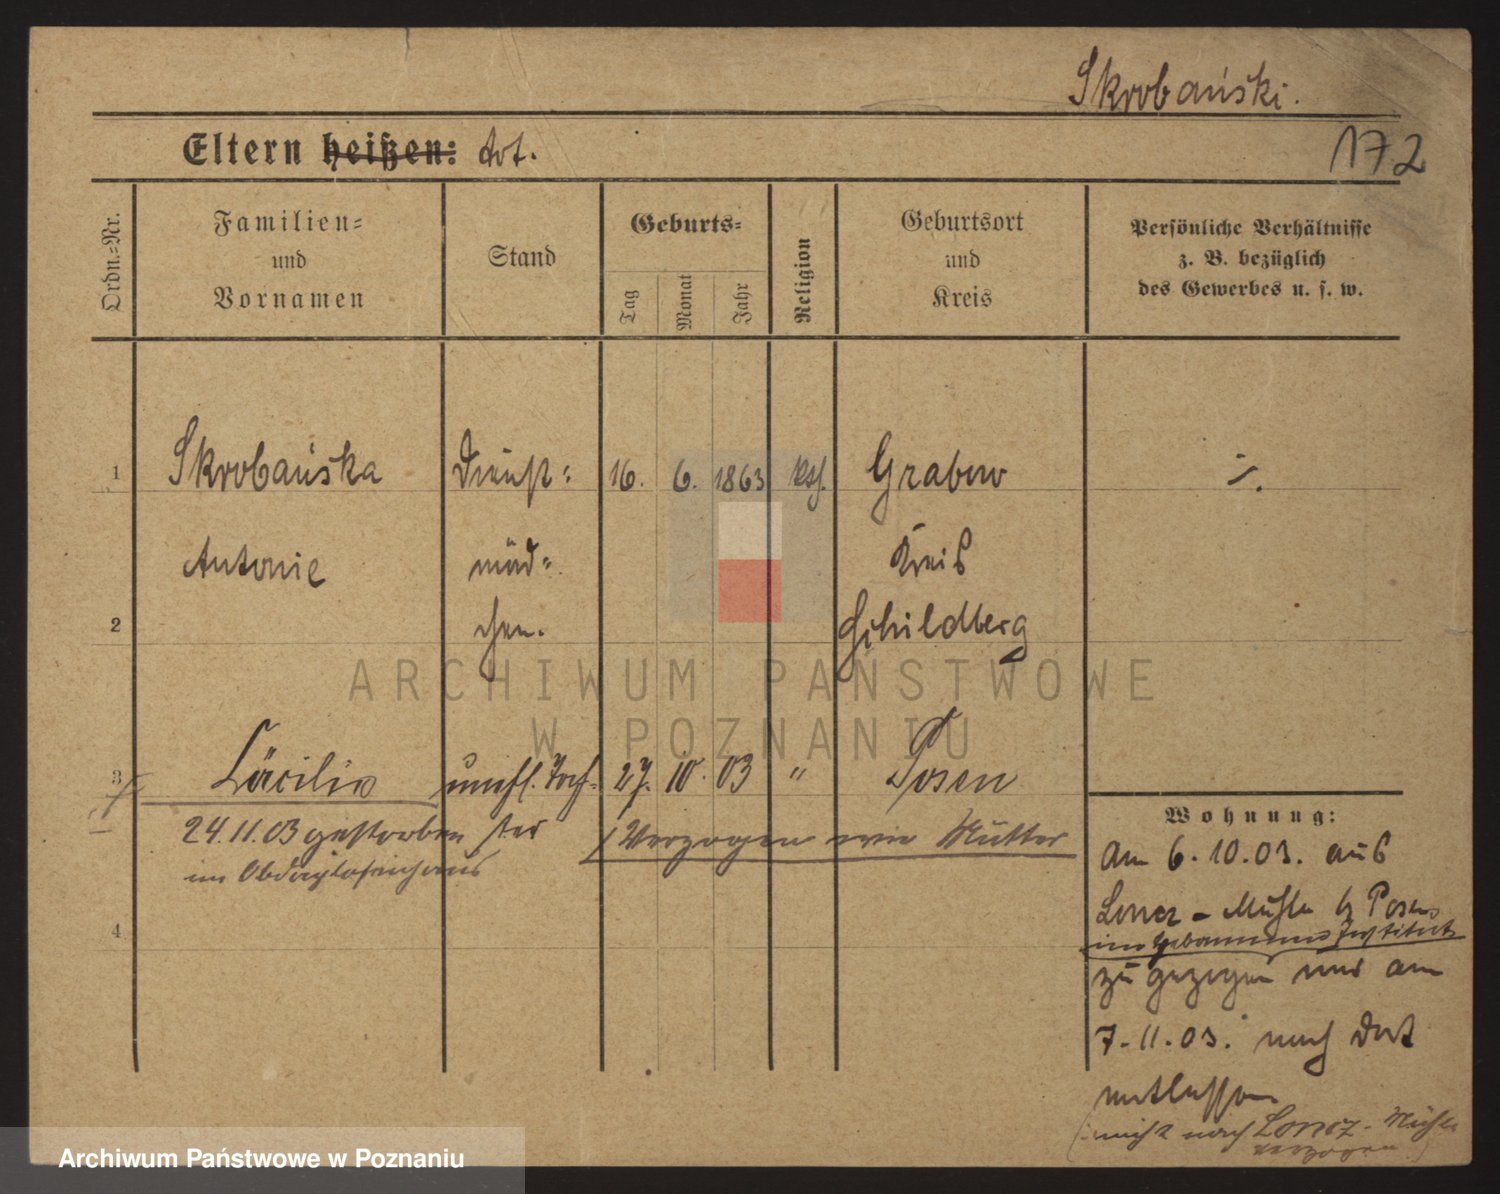 Skrobański.
172
Eltern heißen: tot.
Ordn.=Nr.
Familien=
und
Vornamen
Stand
Geburts=
Tag
Monat
Jahr
Religion
Geburtsort
und
Kreis
Persönliche Verhältnisse
z. B. bezüglich
des Gewerbes u. s. w.
1 Skrobańska Dienst= 16. 6. 1863 kth. Grabow
Antonie mäd= Kreis
2 chen. Schildberg
ARCHIWUM PAŃSTWOWE
W POZNANIU
3 Cäcilie unehl. Toch= 27. 10. 03 " Posen
24.11.03 gestorben ter Verzogen wie Mutter
im Obdachlosenhaus
4
Wohnung:
Am 6.10.03. aus
Loncz-Mühle b Posen
im Hebammen Institut
zugezogen und am
7.11.03. nach dort
entlassen
nicht nach Loncz-Mühle
verzogen
Archiwum Państwowe w Poznaniu